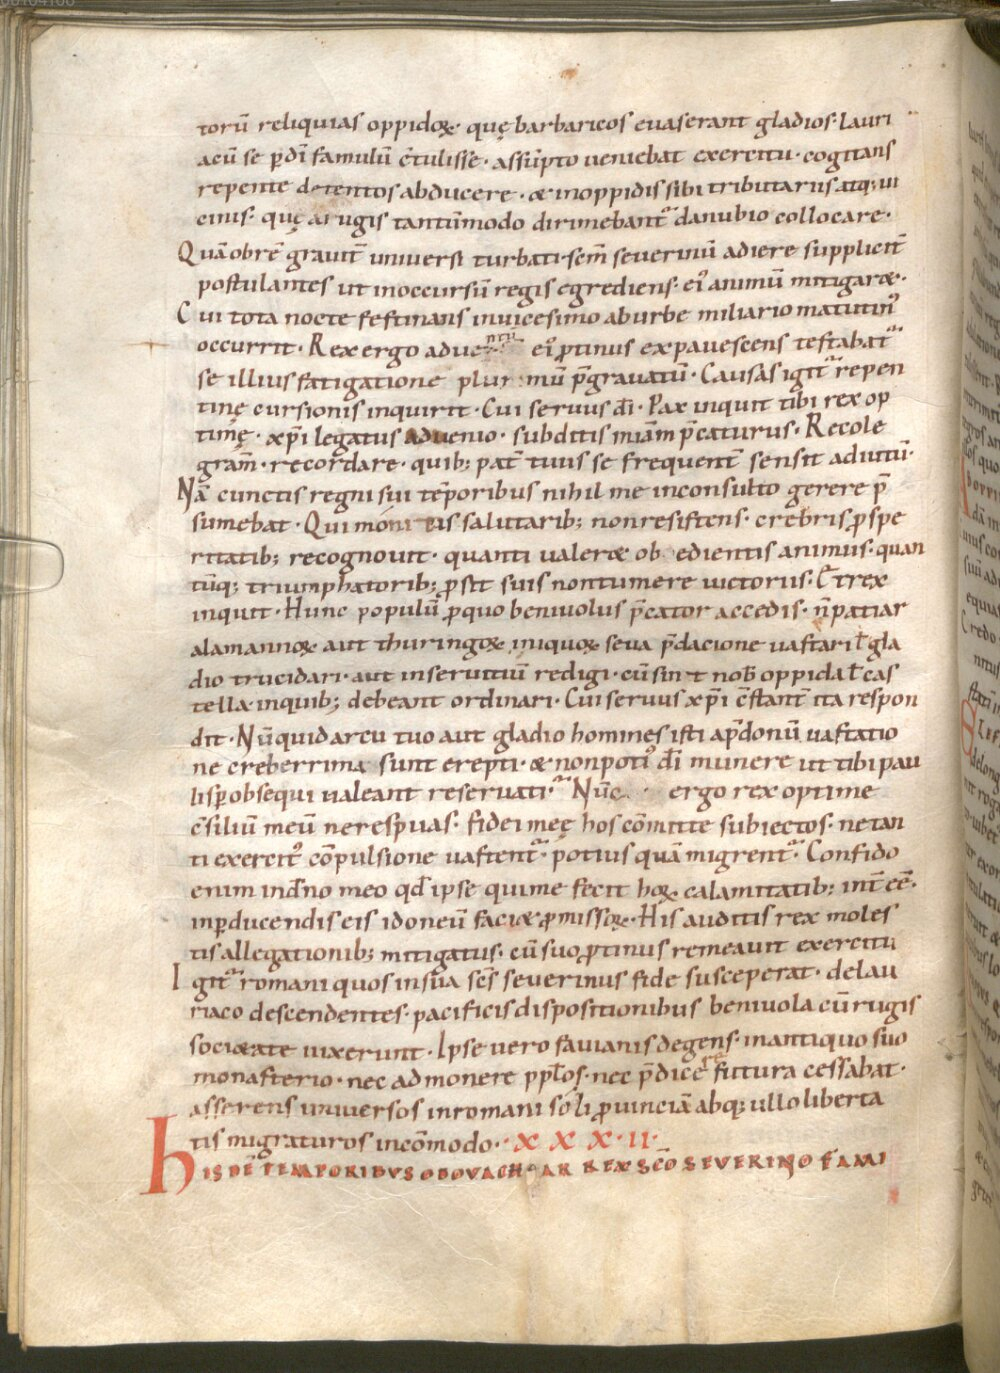 torū reliquias oppidoꝝ· quę barbaricos euaserant gladios· lauri
acū se p̄dī famulū c̄tulisse· assūpto ueniebat exercitu· cogitans
repente detentos abducere· & inoppidis sibi tributariis atq; ui
cinis· quę a rugis tantūmodo dirimebant᷑ danubio collocare·
Quāobrē grauit̄ uniuersi turbati· sc̄m seuerinū adiere supplicit̄
postulantes ut inoccursū regis egrediens· ei᷒ animū mitigar&·
Cui tota nocte festinans inuicesimo aburbe miliario matutin᷒
occurrit· Rex ergo adue ntū ei᷒ ꝓtinus expauescens testabat᷑
se illius fatigatione plurimū p̄grauatū· Causas igit᷑ repen
tinę cursionis inquirit· Cui seruus dī· Pax inquit tibi rex op
timę· xp̄i legatus aduenio· subditis miām p̄caturus· Recole
gram̄· recordare· quib; pat̄ tuus se frequent̄ sensit adiutū·
Nā cunctis regni sui tēporibus nihil me inconsulto gerere p̄
sumebat· Qui monitis salutarib; nonresistens· crebris ꝓspe
ritatib; recognouit· quanti ualer& obedientis animus· quan
tūq; triumphatorib; ꝓsit suis nontumere uictoriis· Et rex
inquit· Hunc populū ꝓquo beniuolus p̄cator accedis· n̄ patiar
alamannoꝝ aut thuringoꝝ iniquoꝝ seua p̄dacione uastari ł gla
dio trucidari· aut inseruitiū redigi· cū sint nob̄ oppida ł cas
tella inquib; debeant ordinari· Cui seruus xp̄i c̄stant̄ ita respon
dit· Nūquid arcu tuo aut gladio homines isti ap̄donū uastatio
ne creberrima sunt erepti· & nonpoti᷒ dī munere ut tibi pau
lisꝑ obsequi ualeant reseruati᷑ Nūc ergo rex optime
c̄siliū meū nerespuas· fidei meę hos cōmitte subiectos· netan
ti exercit᷒ cōpulsione uastent᷑ potius quā migrent᷑ Confido
enim indn̄o meo qd̄ ipse quime fecit hoꝝ calamitatib; int̄ee·
inꝑducendis eis idoneū faci& ꝓmissoꝝ· His auditis rex moles
tis allegationib; mitigatus· cū suo ꝓtinus remeauit exercitu
Igit᷑ romani quos insua sc̄s seuerinus fide susceperat· delau
riaco descendentes· pacificis dispositionibus beniuola cū rugis
soci&ate uixerunt· Ipse uero fauianis degens· inantiquo suo
monasterio· nec admonere ppl̄os· nec p̄dicere futura cessabat·
asserens uniuersos inromani soli ꝓuinciā absq; ullo liberta
tis migraturos incōmodo· · X X X · II ·
HIS DĒ TEMPORIBVS ODOVACHAR REX SC̄O SEVERINO FAMI